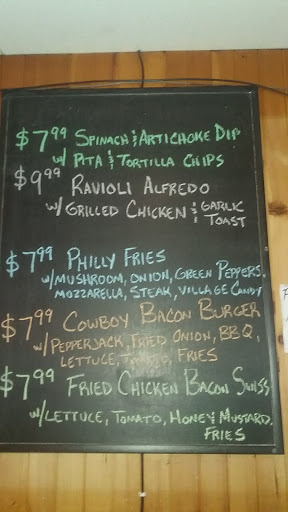 $7.99 SPINACH & ARTICHOKE DIP
w/ PITA & TORTILLA CHIPS
$9.99 RAVIOLI ALFREDO
w/ GRILLED CHICKEN & GARLIC
TOAST
$7.99 PHILLY FRIES
w/ MUSHROOM, ONION, GREEN PEPPERS,
MOZZARELLA, STEAK, VILLAGE CANDY
$7.99 COWBOY BACON BURGER
w/ PEPPERJACK, FRIED ONION, BBQ,
LETTUCE, TOMATO, FRIES
$7.99 FRIED CHICKEN BACON SWISS
w/ LETTUCE, TOMATO, HONEY MUSTARD,
FRIES